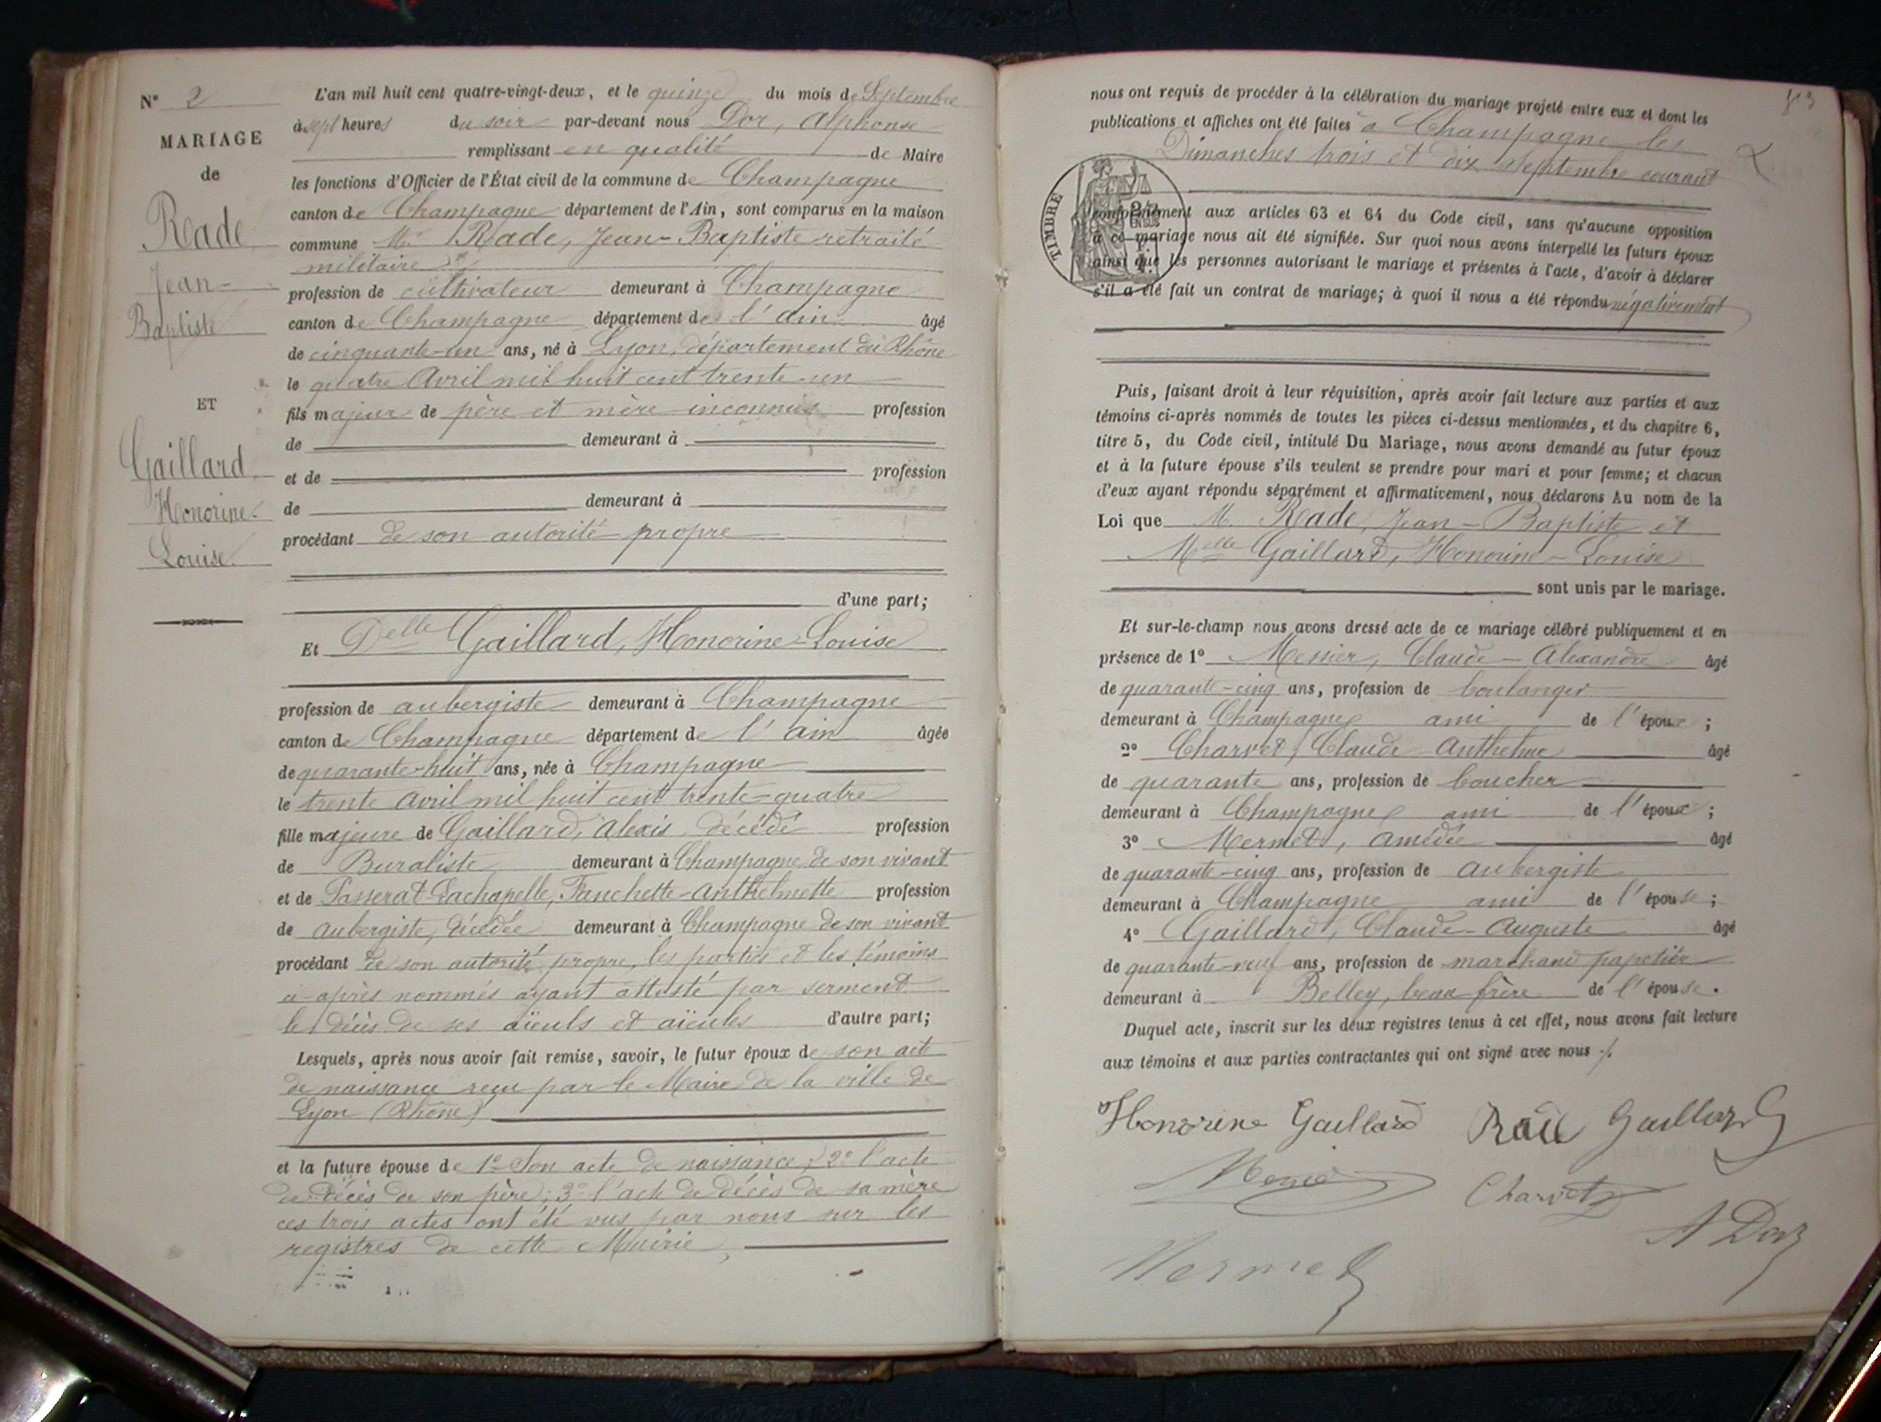 N° 2
MARIAGE
de
Rade
Jean-
Baptiste
ET
Gaillard
Honorine-
Louise
L'an mil huit cent quatre-vingt-deux, et le quinze du mois de Septembre
à sept heures du soir par-devant nous Dor, Alphonse
remplissant en qualité de Maire
les fonctions d'Officier de l'État civil de la commune de Champagne
canton de Champagne département de l'Ain, sont comparus en la maison
commune Mr Rade, Jean-Baptiste retraité
militaire
profession de cultivateur demeurant à Champagne
canton de Champagne département de l'ain âgé
de cinquante-un ans, né à Lyon, département du Rhône
le quatre Avril mil huit cent trente-un
fils majeur de père et mère inconnus profession
de demeurant à
et de profession
de demeurant à
procédant de son autorité propre
d'une part;
Et Delle Gaillard, Honorine-Louise
profession de aubergiste demeurant à Champagne
canton de Champagne département de l'ain âgée
de quarante-huit ans, née à Champagne
le trente avril mil huit cent trente-quatre
fille majeure de Gaillard, Alexis décédé profession
de Buraliste demeurant à Champagne de son vivant
et de Passerat-Lachapelle, Fanchette-Anthelmette profession
de aubergiste, décédée demeurant à Champagne de son vivant
procédant de son autorité propre, les parties et les témoins
ci-après nommés ayant attesté par serment
le décès de ses aïeuls et aïeules d'autre part;
Lesquels, après nous avoir fait remise, savoir, le futur époux de son acte
de naissance reçu par le Maire de la ville de
Lyon (Rhône)
et la future épouse de 1° Son acte de naissance; 2° l'acte
de décès de son père; 3° l'acte de décès de sa mère
ces trois actes ont été vus par nous sur les
registres de cette Mairie,
nous ont requis de procéder à la célébration du mariage projeté entre eux et dont les
publications et affiches ont été faites à Champagne les
Dimanches trois et dix septembre courant
TIMBRE
conformément aux articles 63 et 64 du Code civil, sans qu'aucune opposition
à ce mariage nous ait été signifiée. Sur quoi nous avons interpellé les futurs époux
ainsi que les personnes autorisant le mariage et présentes à l'acte, d'avoir à déclarer
s'il a été fait un contrat de mariage; à quoi il nous a été répondu négativement
Puis, faisant droit à leur réquisition, après avoir fait lecture aux parties et aux
témoins ci-après nommés de toutes les pièces ci-dessus mentionnées, et du chapitre 6,
titre 5, du Code civil, intitulé Du Mariage, nous avons demandé au futur époux
et à la future épouse s'ils veulent se prendre pour mari et pour femme; et chacun
d'eux ayant répondu séparément et affirmativement, nous déclarons Au nom de la
Loi que M. Rade, Jean-Baptiste et
Melle Gaillard, Honorine-Louise
sont unis par le mariage.
Et sur-le-champ nous avons dressé acte de ce mariage célébré publiquement et en
présence de 1° Messier, Claude-Alexandre âgé
de quarante-cinq ans, profession de boulanger
demeurant à Champagne ami de l'époux;
2° Charvet, Claude Anthelme âgé
de quarante ans, profession de boucher
demeurant à Champagne ami de l'époux;
3° Mermet, Amédée âgé
de quarante-cinq ans, profession de aubergiste
demeurant à Champagne ami de l'épouse;
4° Gaillard, Claude-Auguste âgé
de quarante-neuf ans, profession de marchand papetier
demeurant à Belley, beau frère de l'épouse.
Duquel acte, inscrit sur les deux registres tenus à cet effet, nous avons fait lecture
aux témoins et aux parties contractantes qui ont signé avec nous
Honorine Gaillard Rade Gaillard
Charvet
A Dor
Mermet